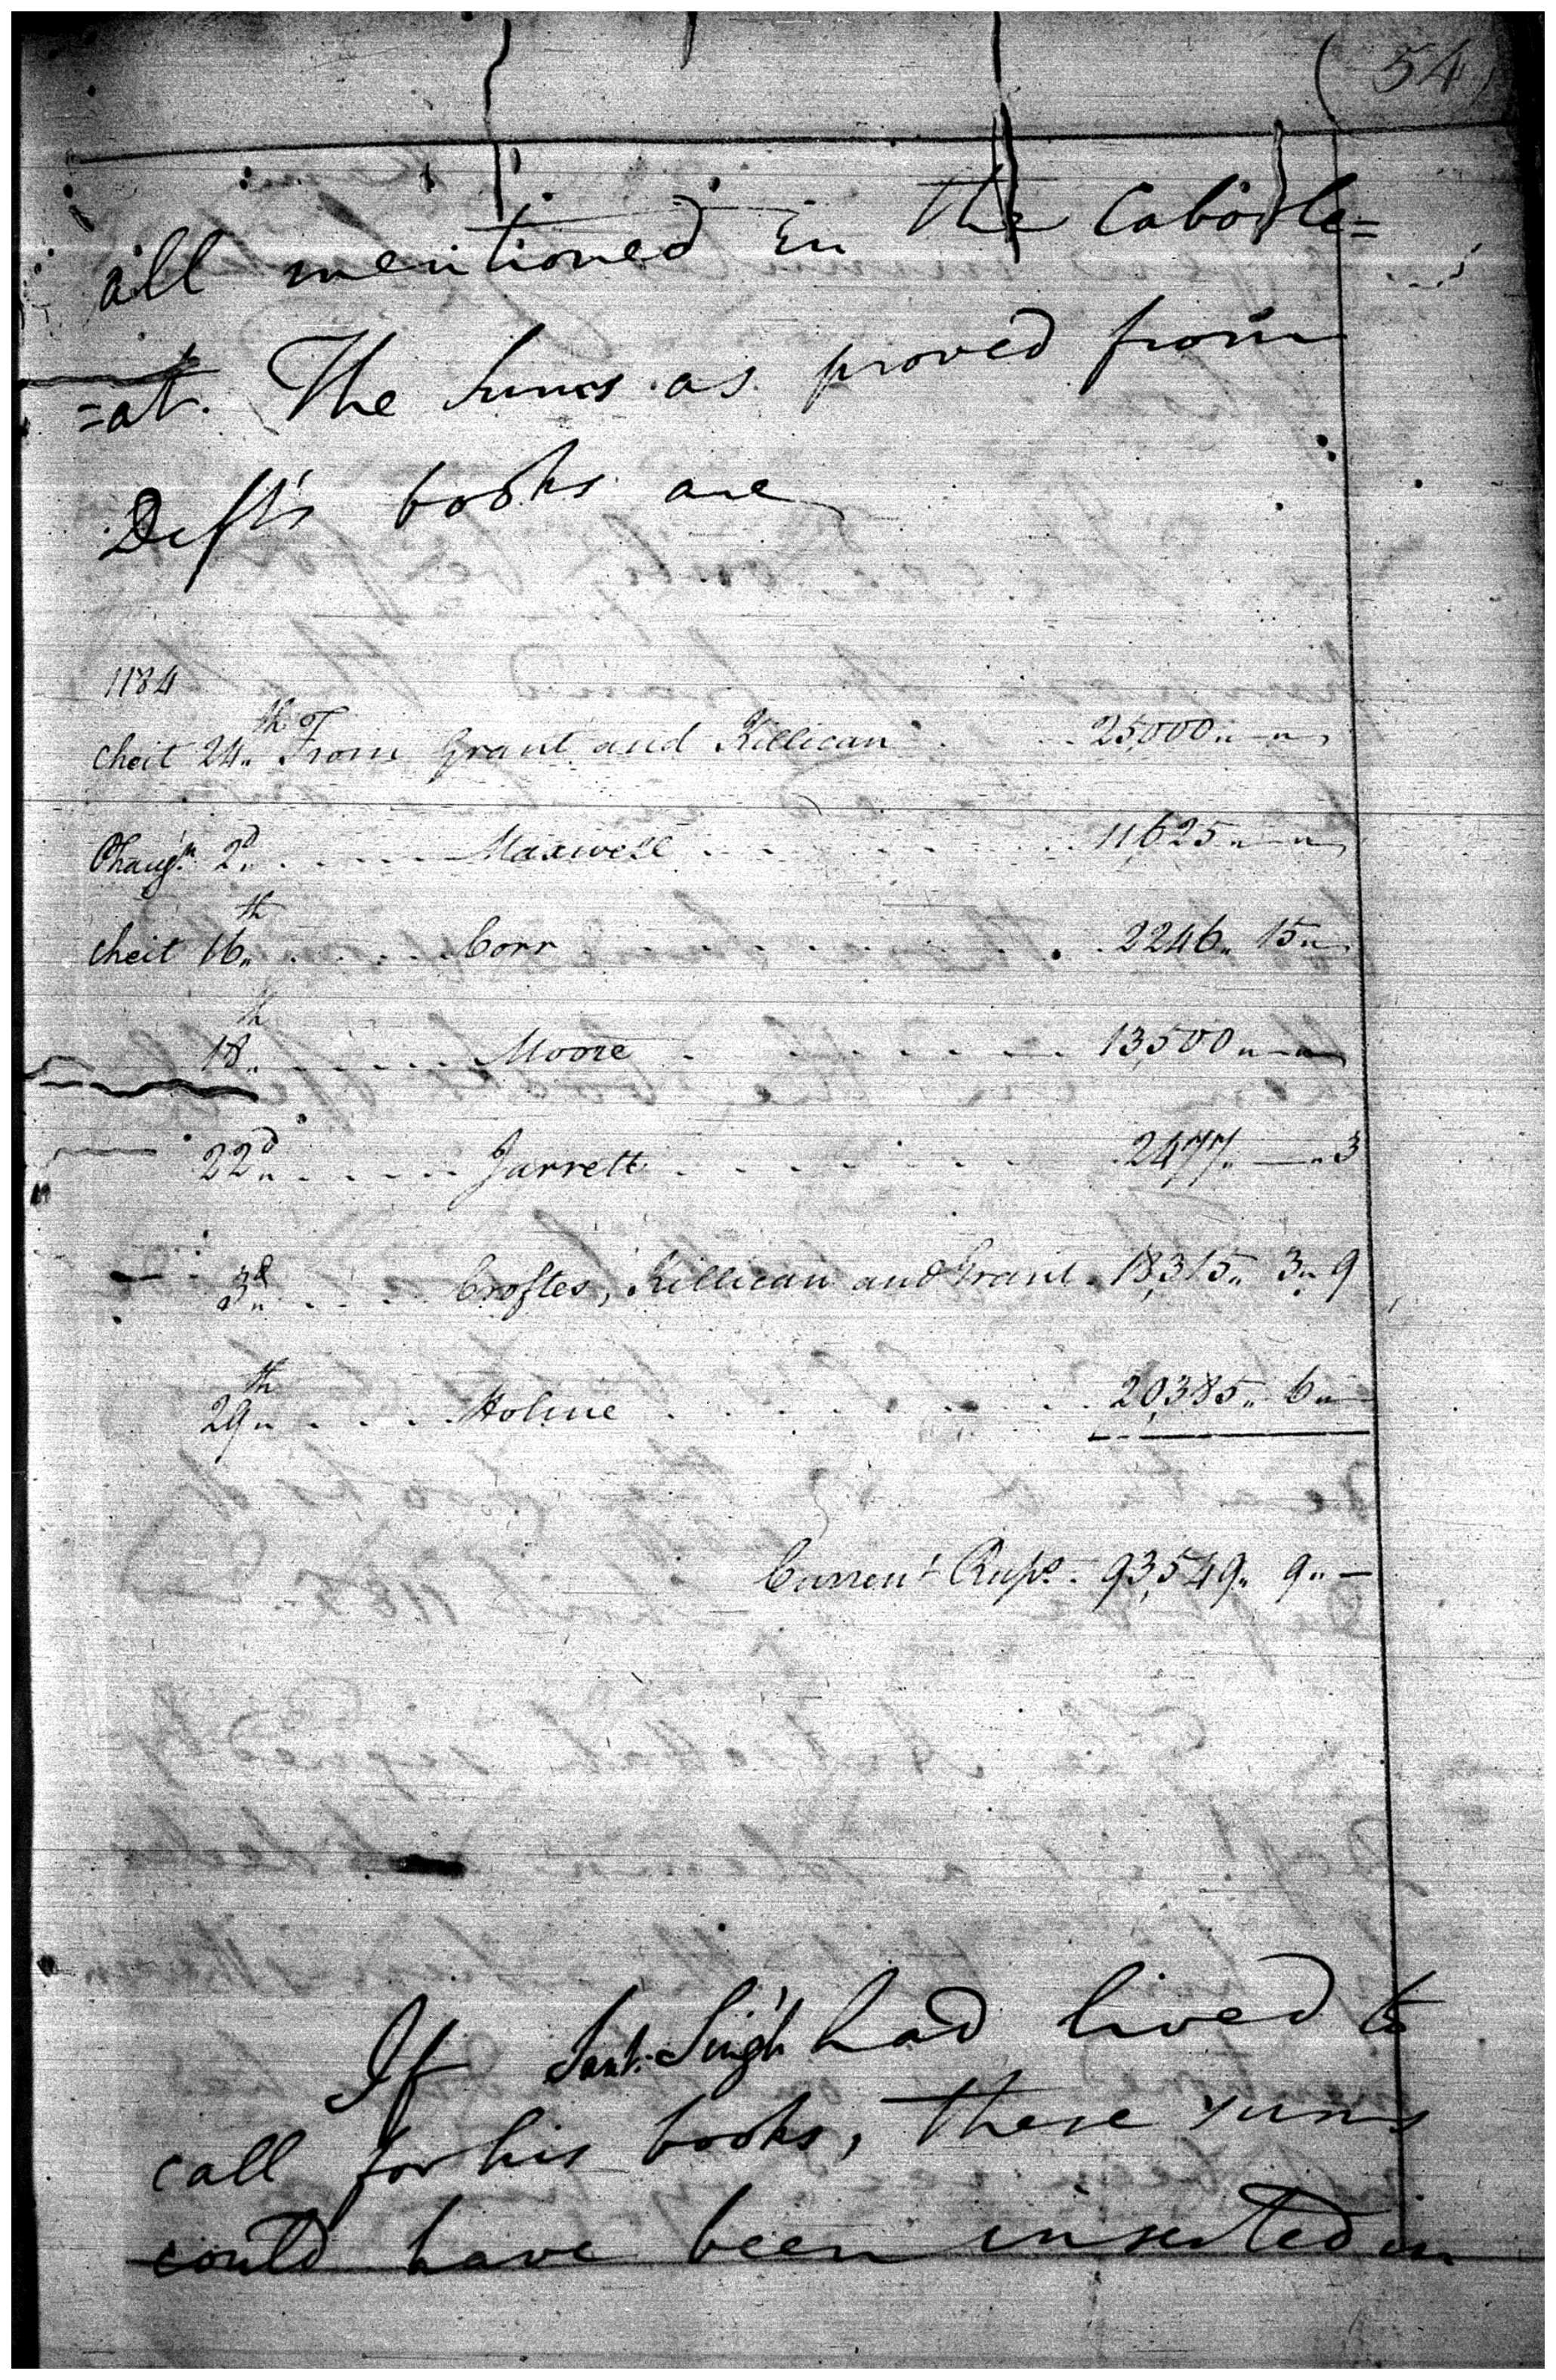 ( 54 )
all mentioned in the Caboole=
=at. The sums as proved from
Deft's books are
1184
Cheit 24th From Grant and Killican . . 25,000 " — "
Phaug'n 2d . . . . Maxwell . . . . . . . 11,625 " — "
Cheit 16th . . . . . Corr . . . . . . . . 2246 " 15 "
18th . . . . . Moore . . . . . . . 13,500 " — "
22d . . . . Jarrett . . . . . . . 2477 " — " 3
3d . . . . Croftes, Killican and Grant . 18,315 " 3 " 9
29th . . . . Holme . . . . . . . . 20,385 " 6 " —
Current Rups. 93,549 " 9 " —
If Sant. Singh had lived to
call for his books, these sums
could have been inserted in